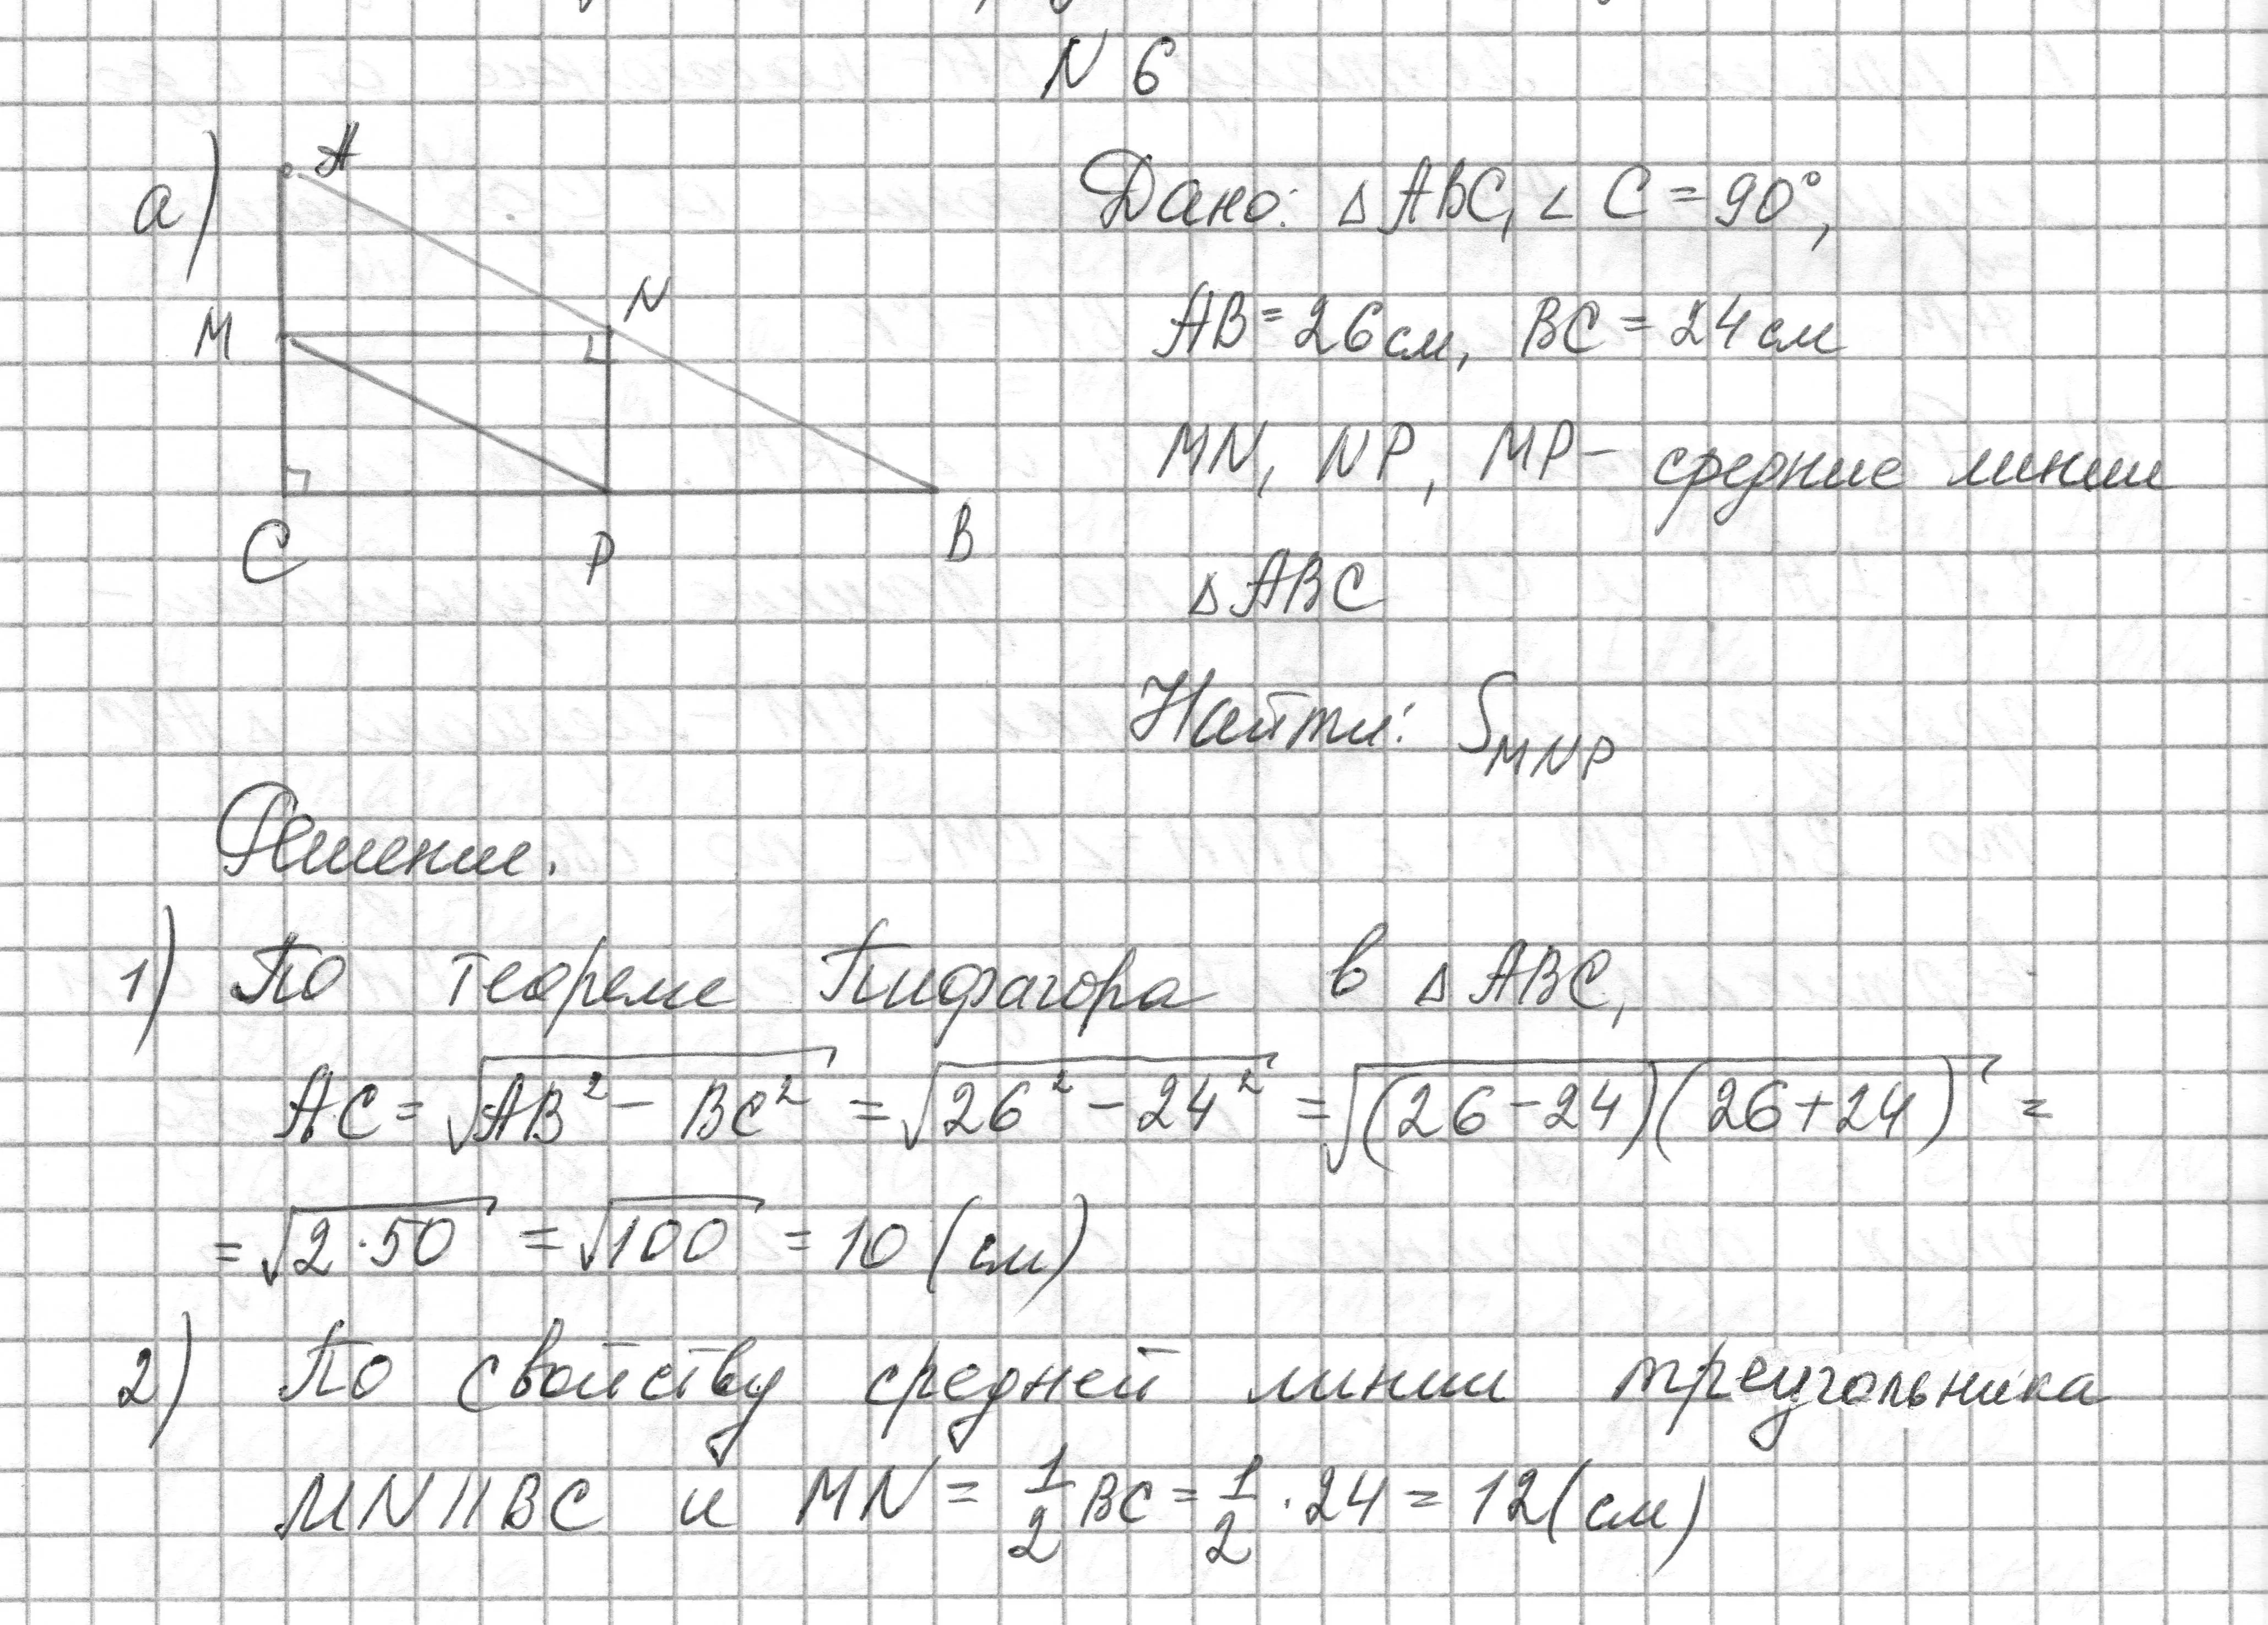 N 6
а)
A
M
N
C
P
B
Дано: △ABC, ∠C = 90°,
AB = 26 см, BC = 24 см
MN, NP, MP – средние линии
△ABC
Найти: S_MNP
Решение.
1) По теореме Пифагора в △ABC,
AC = √(AB² − BC²) = √(26² − 24²) = √((26 − 24)(26 + 24)) =
= √(2·50) = √100 = 10 (см)
2) По свойству средней линии треугольника
MN || BC и MN = 1/2 BC = 1/2 · 24 = 12 (см)